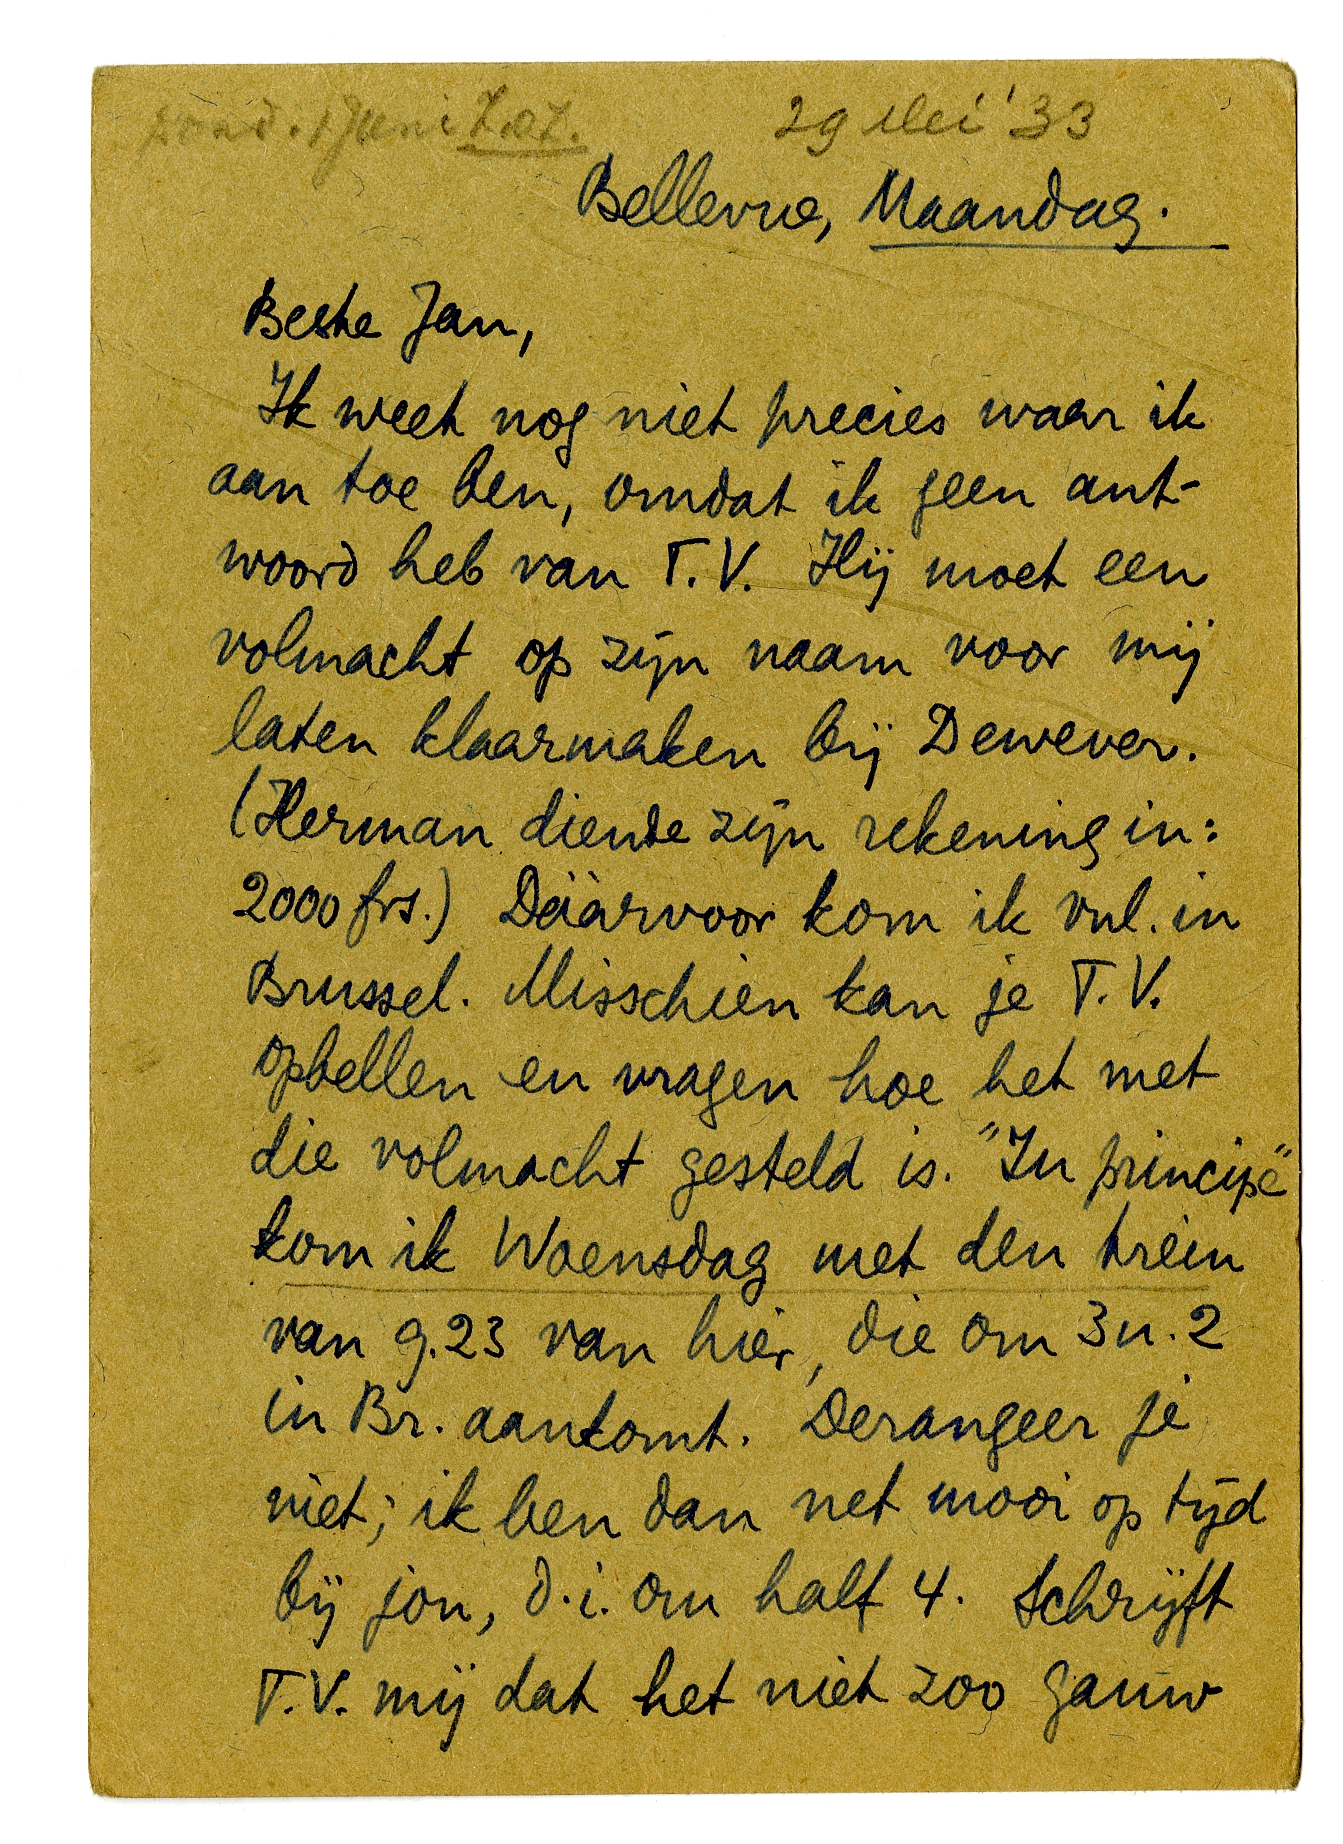 Juni Z.O.Z.
29 Mei '33
Bellevue, Maandag.
Beste Jan,
Ik weet nog niet precies waar ik
aan toe ben, omdat ik geen ant-
woord heb van T.V. Hij moet een
volmacht op zijn naam voor mij
laten klaarmaken bij Dewever.
(Herman diende zijn rekening in:
2000 frs.) Dáárvoor kom ik vnl. in
Brussel. Misschien kan je T.V.
opbellen en vragen hoe het met
die volmacht gesteld is. "In principe"
kom ik Woensdag met den trein
van 9.23 van hier, die om 3 u. 2
in Br. aankomt. Derangeer je
niet; ik ben dan net mooi op tijd
bij jou, d.i. om half 4. Schrijft
T.V. mij dat het niet zoo gauw